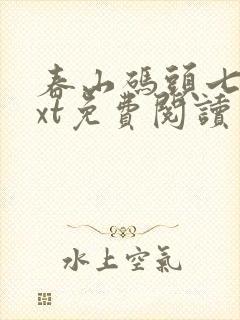 春山碼頭七
xt免費閱讀
水上空氣